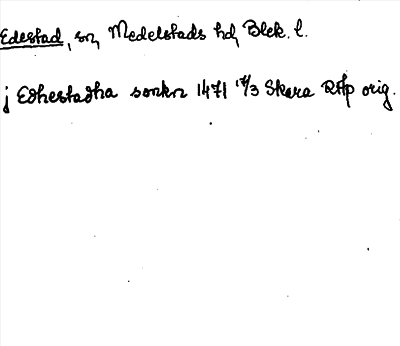 Edestad, sn, Medelstads hd, Blek. l.
j Edhestadha sonkn 1471 17/3 Skara RAp orig.